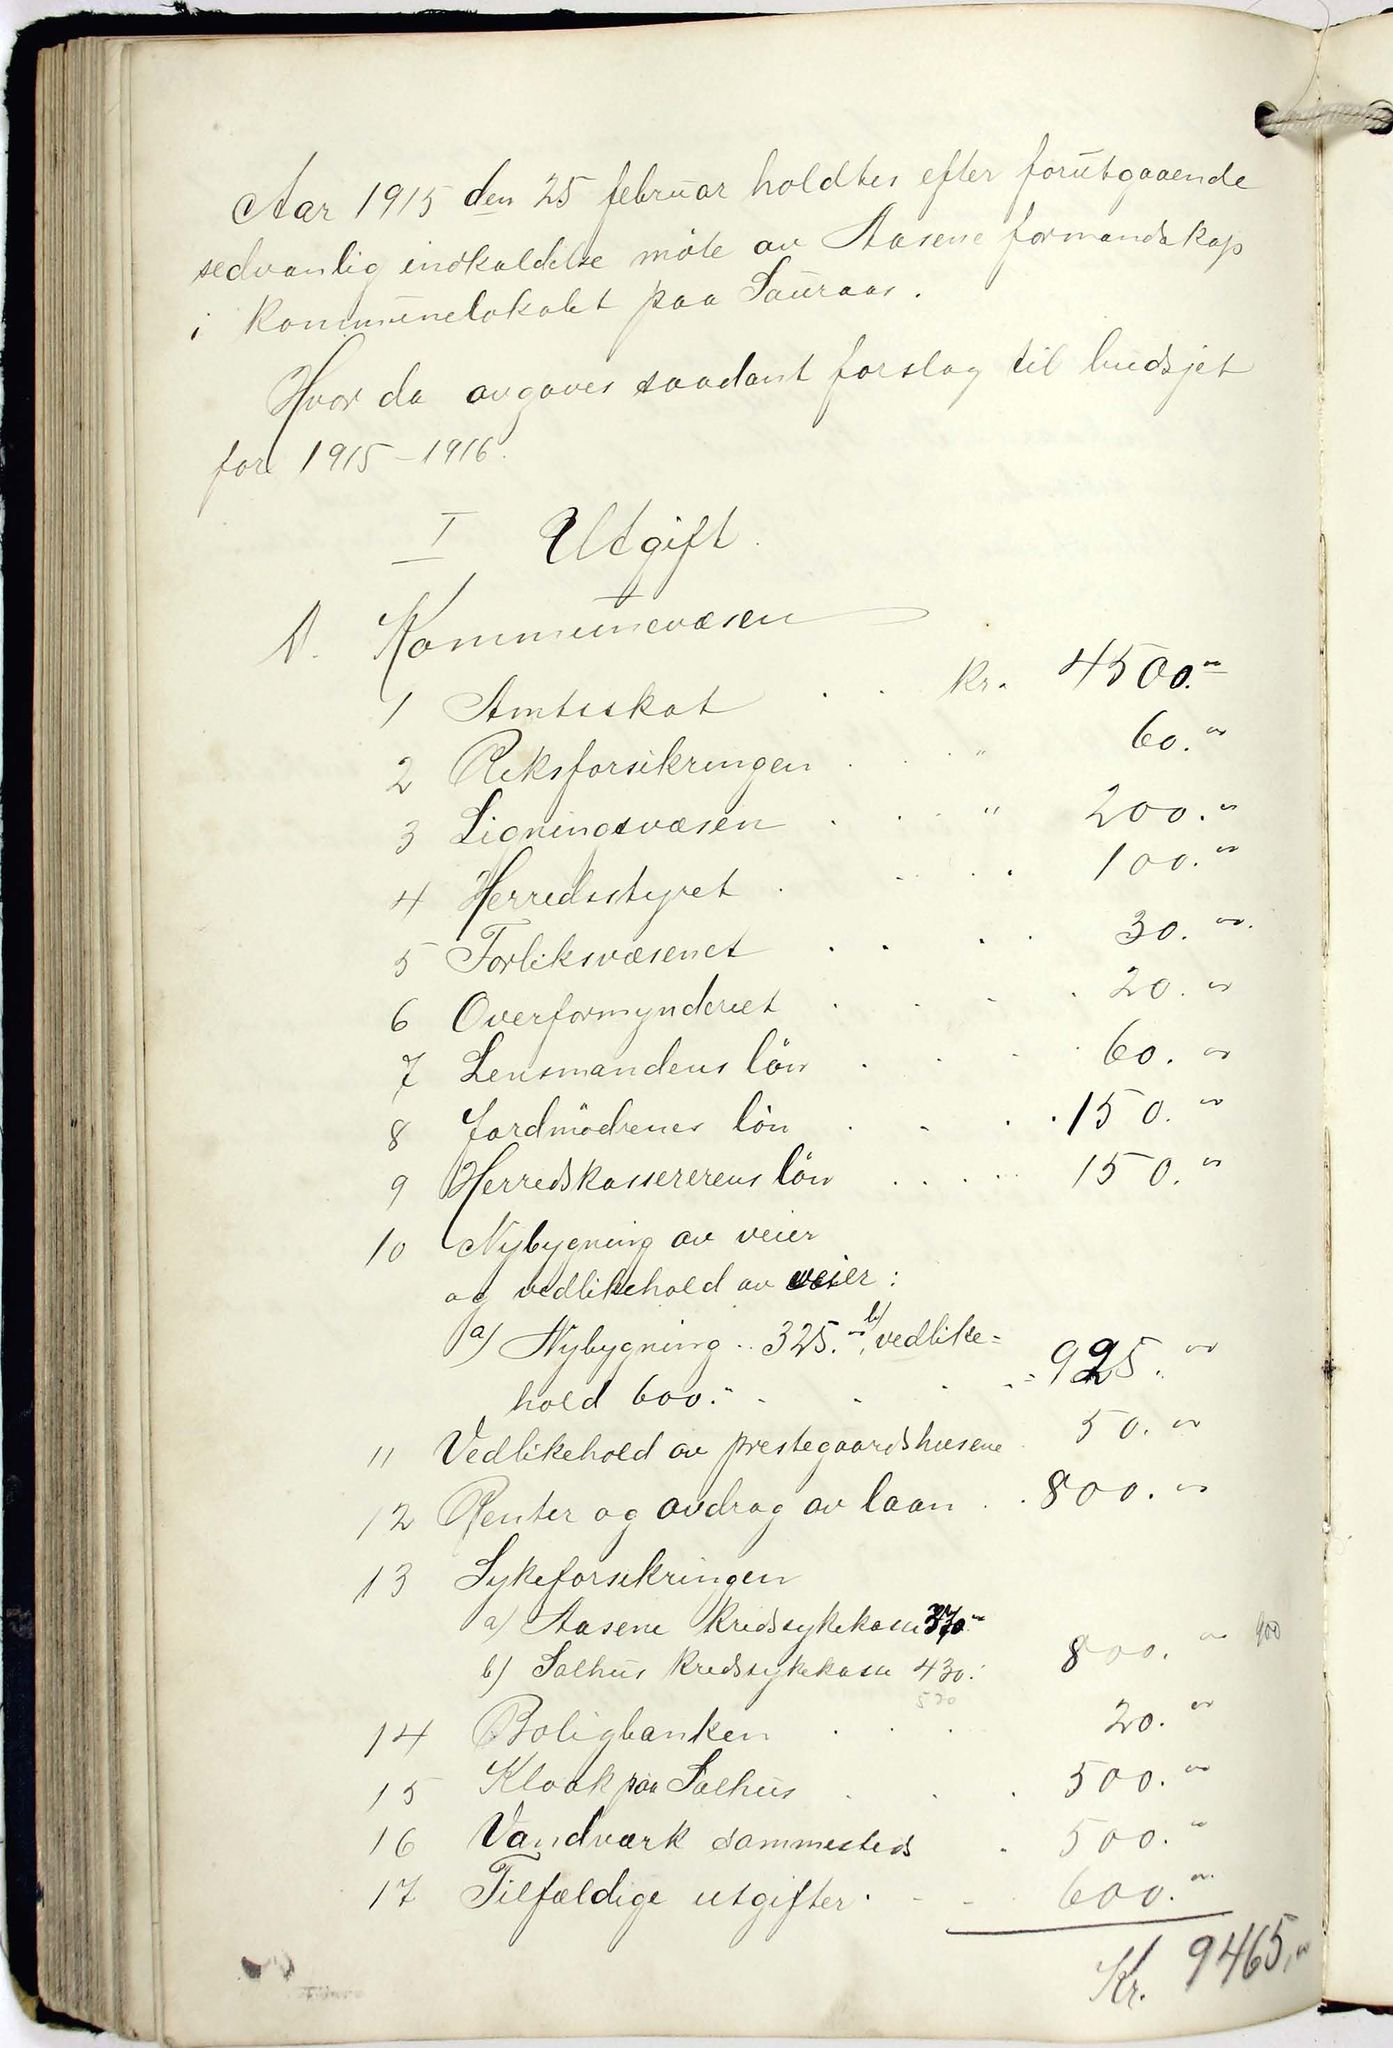 Aar 1915 den 25 februar holdtes efter forutgaaende
sedvanlig indkaldelse møte av Aasene formandskap
i kommunelokalet paa Sauraas.
Hvor da avgaves saadant forslag til budsjet
for 1915-1916.
I Utgift.
A. Kommunevæsen
1 Amtsskat . . kr. 4500.00
2 Riksforsikringen . . " 60.00
3 Ligningsvæsen . . . " 200.00
4 Herredsstyret . . . 100.00
5 Forliksvæsenet . . . . 30.00
6 Overformynderiet . . . . 20.00
7 Lensmandens løn . . . . 60.00
8 Jordmødrenes løn . . . . 150.00
9 Herredskassererens løn . . . . 150.00
10 Nybygning av veier
og vedlikehold av veier:
a) Nybygning .. 325.00, b) vedlike=
hold 600.00 . . . . 925.00
11 Vedlikehold av prestegaardshusene 50.00
12 Renter og avdrag av laan . . 800.00
13 Sykeforsikringen
a) Aasene kredssykekasse 370.00
b) Salhus kredssykekasse 430.: 800.00 900
520
14 Boligbanken . . . 20.00
15 Kloak paa Salhus . . . 500.00
16 Vandværk sammesteds . 500.00
17 Tilfældige utgifter . - - 600.00
Kr. 9465,00